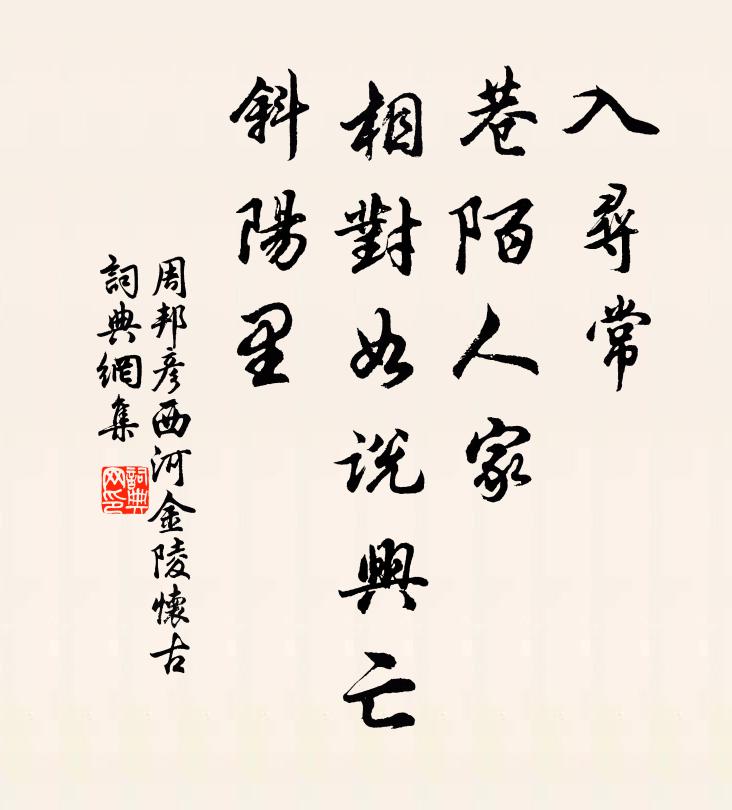 入尋常
巷陌人家
相對如説興亡
斜陽里
周邦彥西河金陵懷古
詞典網集
詞典网印